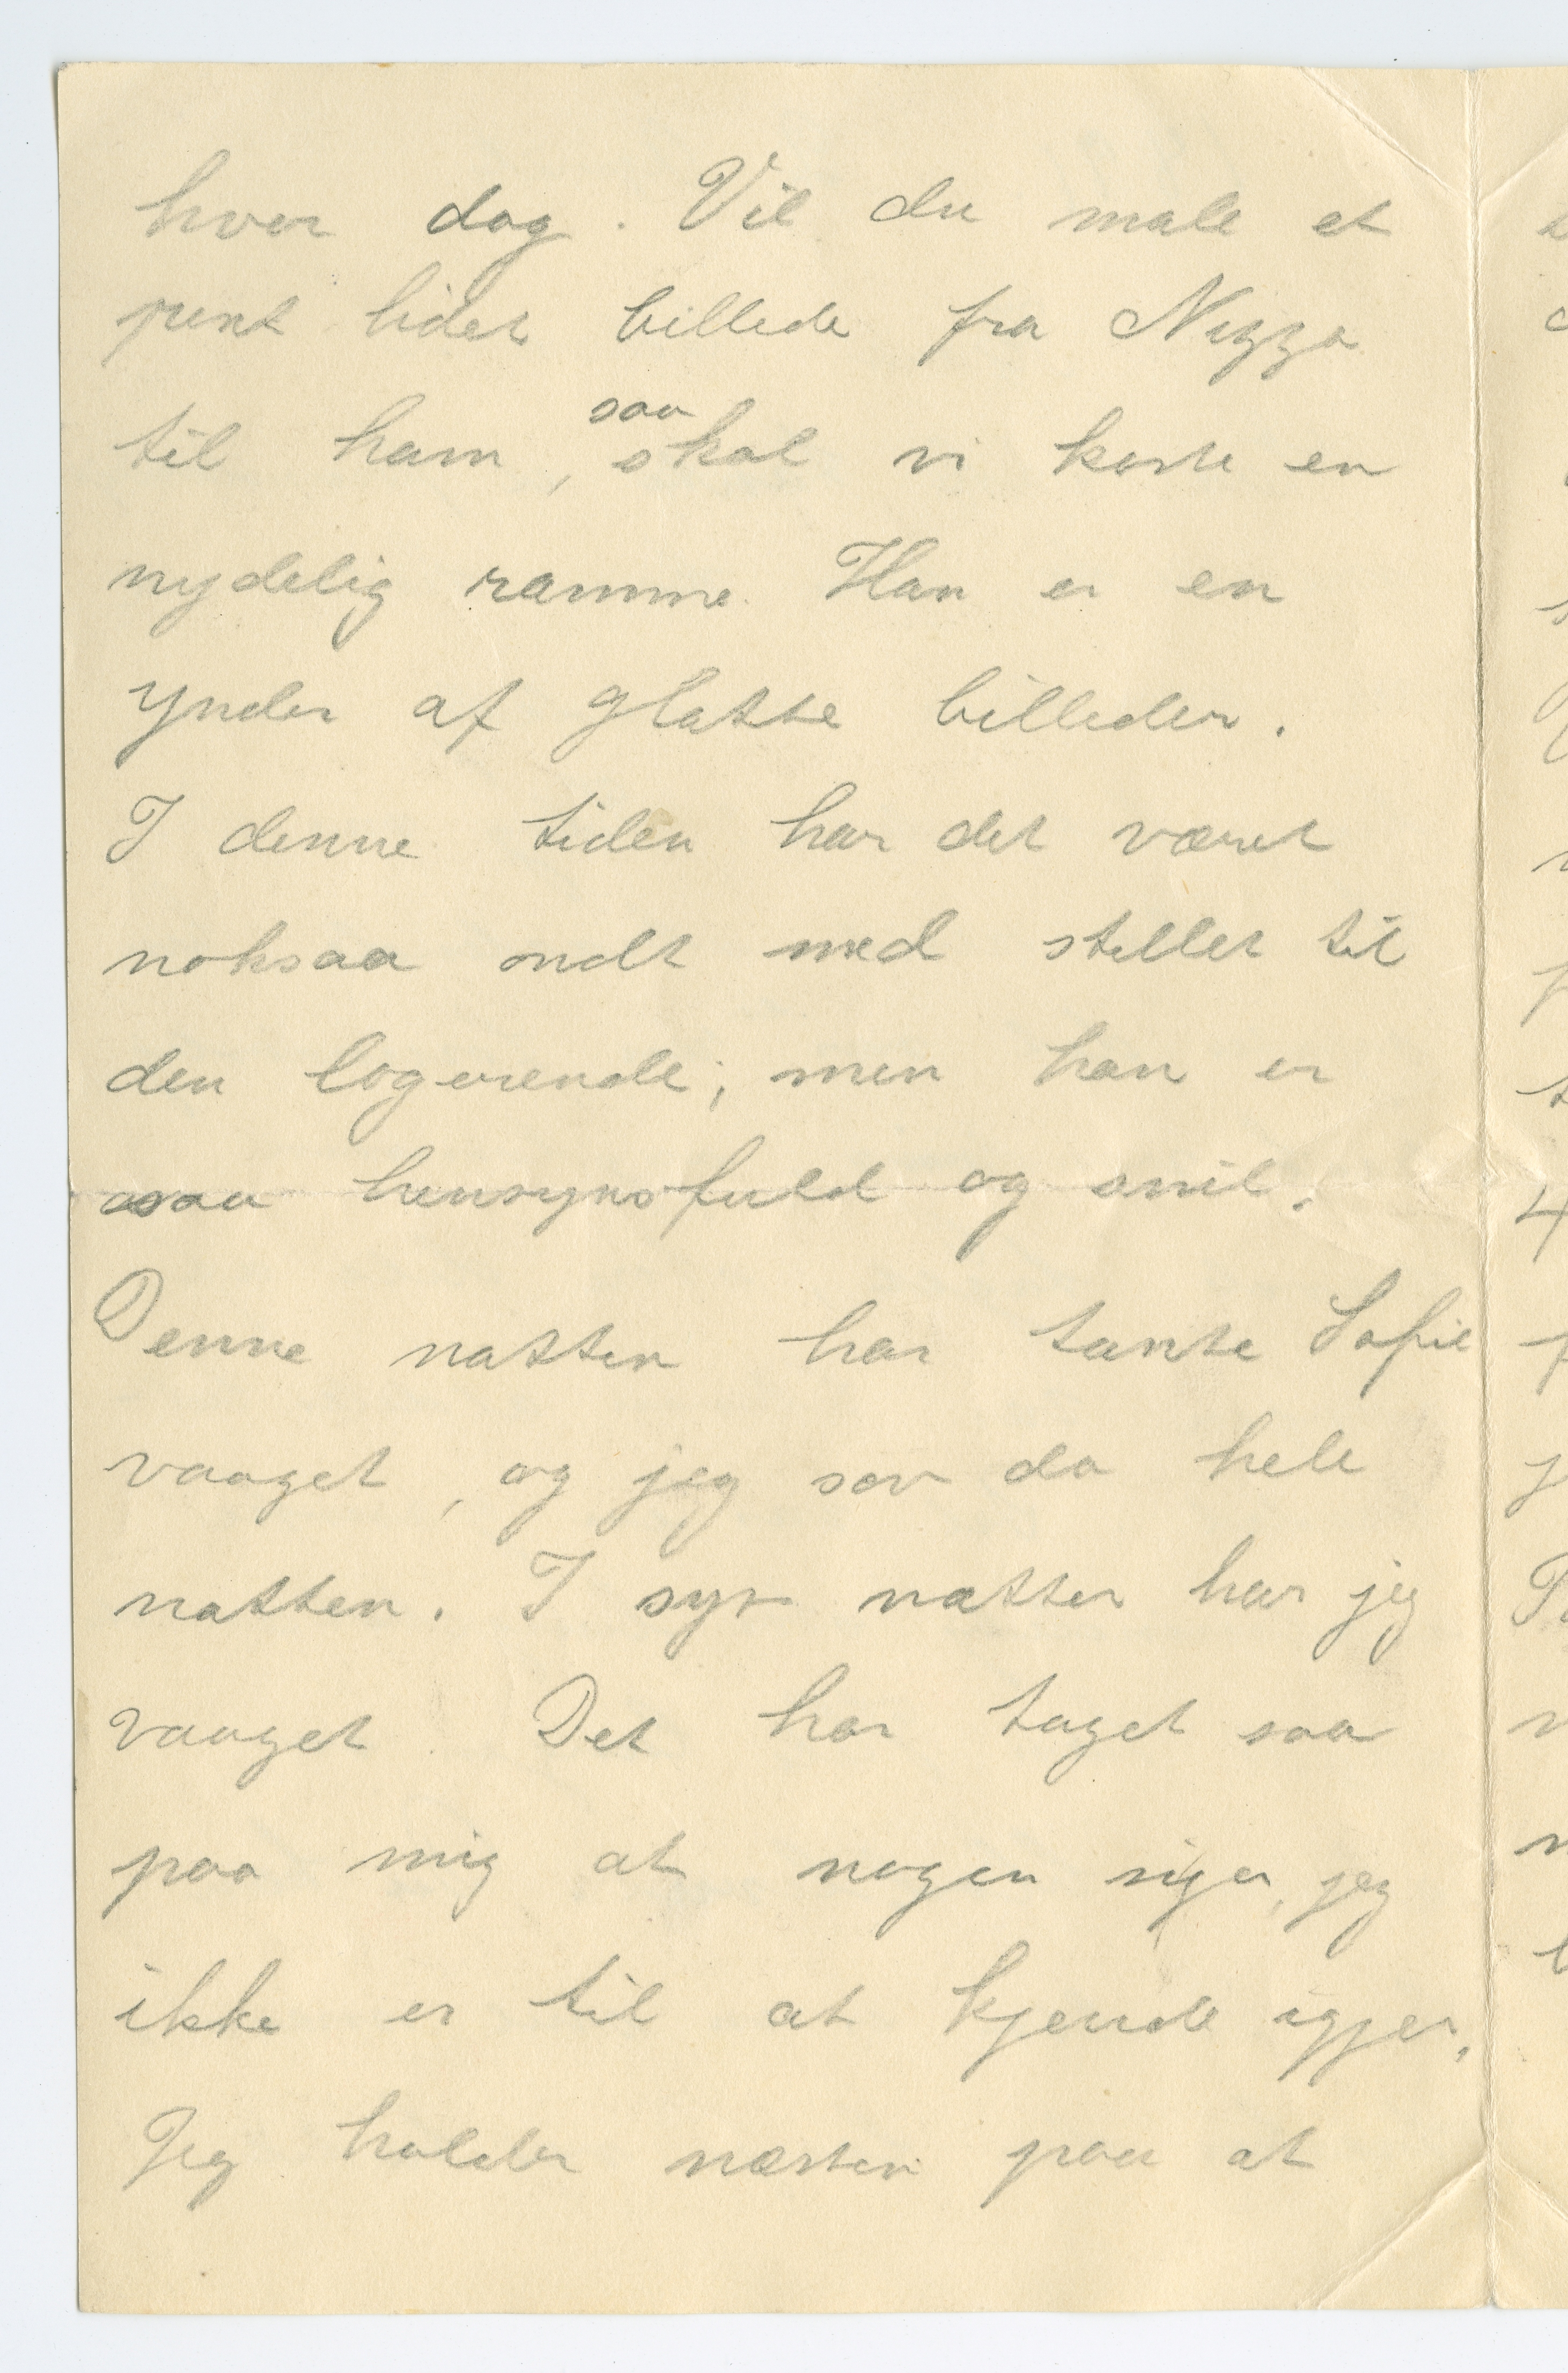 hver dag. Vil du male et
pent lidet billede fra Nizza
til ham, saa skal vi koste en
nydelig ramme. Han er en
ynder af glatte billeder.
I denne tiden har det været
noksaa ondt med stellet til
den logerende; men han er
saa hensynsfuld og snil.
Denne natten har tante Sofie
vaaget, og jeg sov da hele
natten. I syv nætter har jeg
vaaget. Det har taget saa
paa mig at nogen siger, jeg
ikke er til at kjende igjen.
Jeg holder næsten paa at